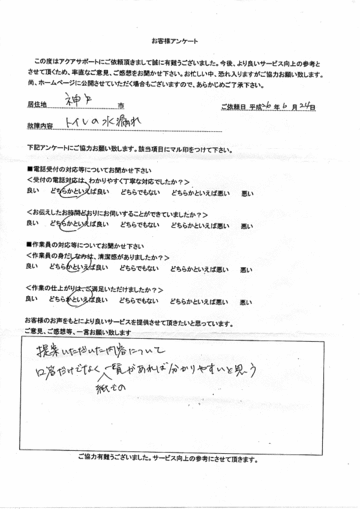 お客様アンケート
この度はアクアサポートにご依頼頂きまして誠に有難うございました。今後、より良いサービス向上の参考と
させて頂くため、率直なご意見、ご感想をお聞かせ下さい。お忙しい中、恐れ入りますがご協力お願い致します。
尚、ホームページに公開させていただく場合もございますので、あらかじめご了承下さい。
居住地 神戸 市 ご依頼日 平成26年 6 月 24日
故障内容 トイレの水漏れ
下記アンケートにご協力お願い致します。該当項目にマル印をつけて下さい。
■電話受付の対応等についてお聞かせ下さい
＜受付の電話対応は、わかりやすく丁寧な対応でしたか？＞
良い どちらかといえば良い どちらでもない どちらかといえば悪い 悪い
＜お伝えしたお時間どおりにお伺いすることができていましたか？＞
良い どちらかといえば良い どちらでもない どちらかといえば悪い 悪い
■作業員の対応等についてお聞かせ下さい
＜作業員の身だしなみは、清潔感がありましたか？＞
良い どちらかといえば良い どちらでもない どちらかといえば悪い 悪い
＜作業の仕上がりは、ご満足いただけましたか？＞
良い どちらかといえば良い どちらでもない どちらかといえば悪い 悪い
お客様のお声をもとにより良いサービスを提供させて頂きたいと思っています。
ご意見、ご感想等、一言お願い致します
提案いただいた内容について
口答だけでなく 一覧があれば分かりやすいと思う
紙での
ご協力有難うございました。サービス向上の参考にさせて頂きます。